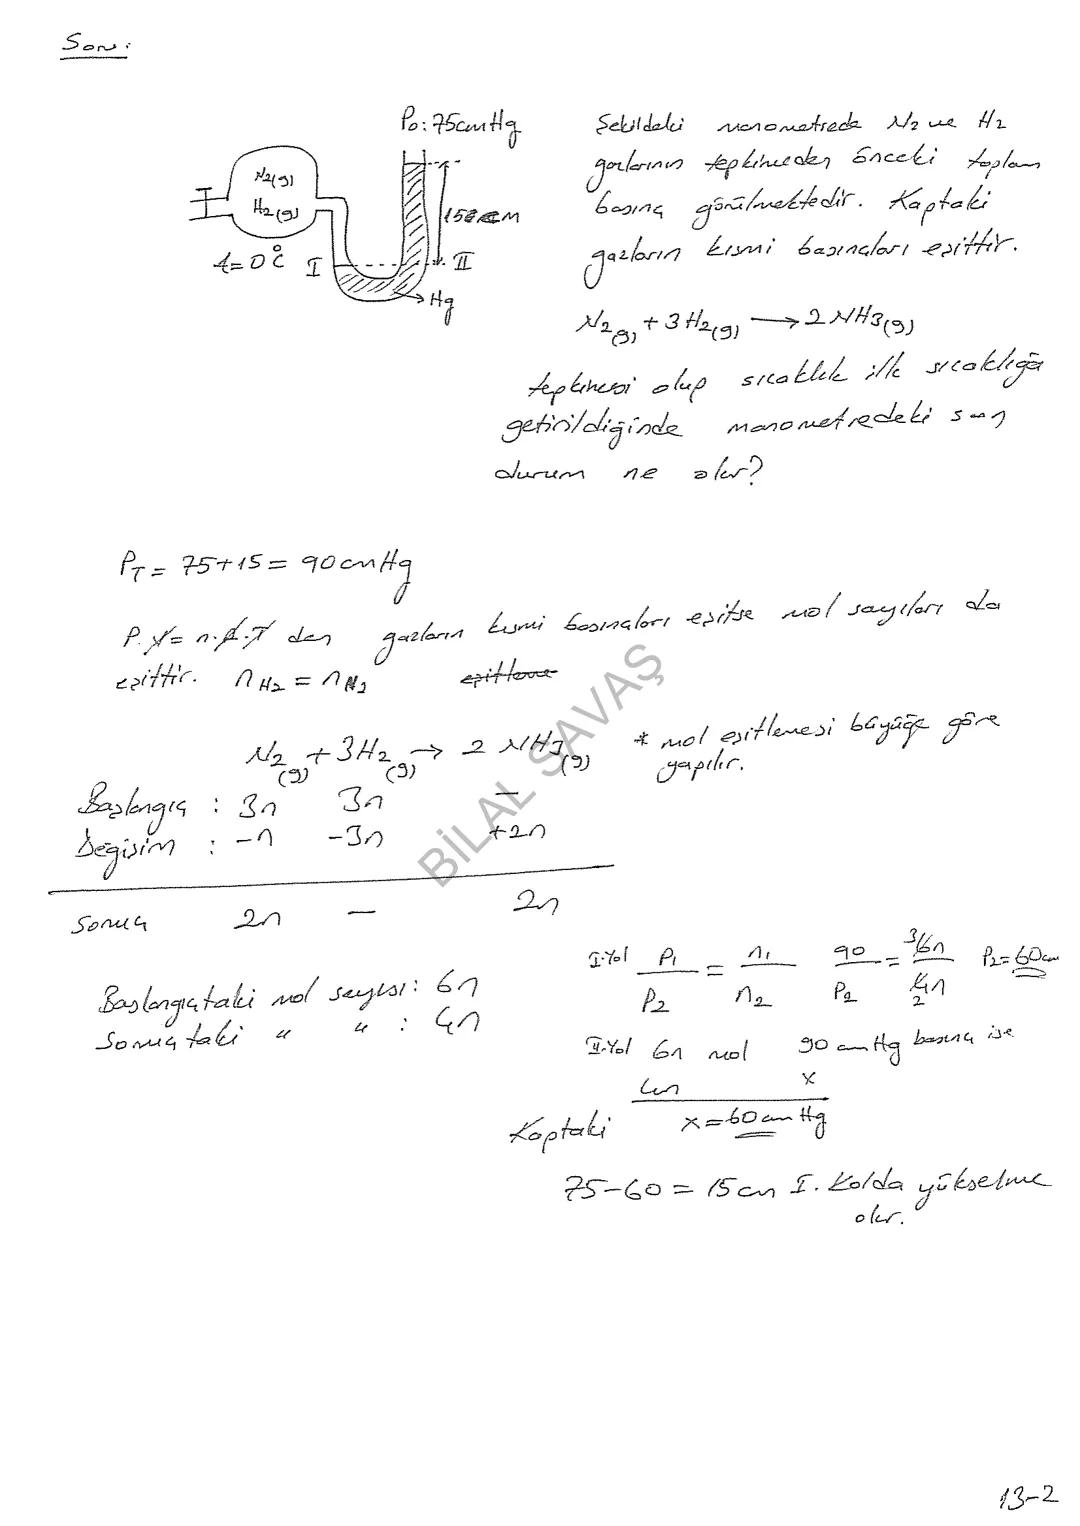 Soru:
P₀: 75cmHg
N₂(g)
H₂(g)
t=0°C
I
II
15 cm
Hg
Şekildeki manometrede N₂ ve H₂
gazlarının tepkimeden önceki toplam
basınç görülmektedir. Kaptaki
gazların kısmi basınçları eşittir.
N₂(g) + 3H₂(g) → 2NH₃(g)
tepkimesi olup sıcaklık ilk sıcaklığa
getirildiğinde manometredeki son
durum ne olur?
P_T = 75+15 = 90cmHg
P.V = n.R.T den gazların kısmi basınçları eşitse mol sayıları da
eşittir. n H₂ = n N₂ eşitleme
N₂(g) + 3H₂(g) → 2 NH₃(g)
* mol eşitlemesi büyüğe göre
yapılır.
Başlangıç : 3n 3n –
Değişim : -n -3n +2n
Sonuç 2n – 2n
Başlangıçtaki mol sayısı: 6n
Sonuçtaki " " : 4n
I.Yol P₁/P₂ = n₁/n₂ 90/P₂ = 3/6n / 4n/2 P₂=60cm
II.Yol 6n mol 90 cmHg basınç ise
4n x
x=60cmHg
Kaptaki
75-60 = 15cm I. Kolda yükselme
olur.
BİLAL SAVAŞ
13-2